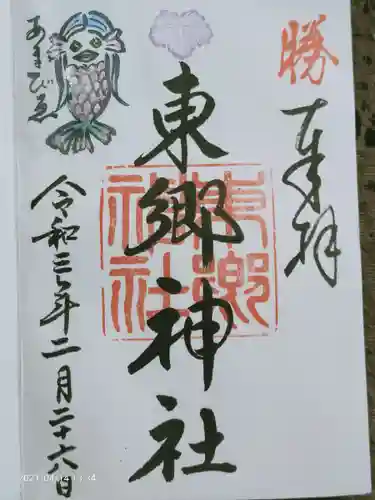 勝
奉拝
東郷神社
東郷神社
令和三年二月二十六日
あまびゑ